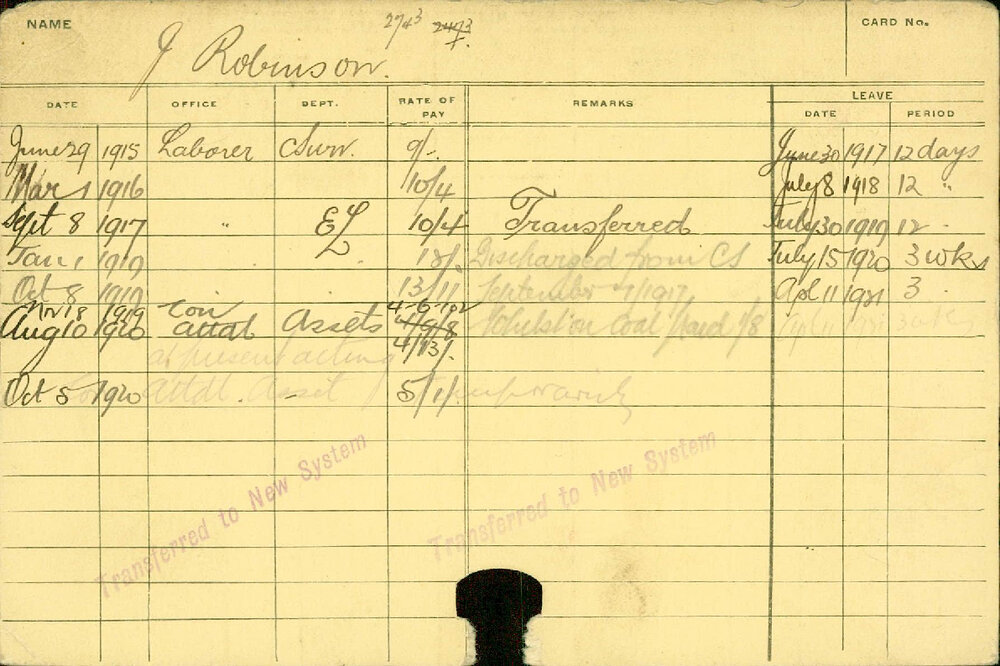 NAME
2743 2473
CARD No.
J Robinson.
DATE OFFICE DEPT. RATE OF PAY REMARKS LEAVE
DATE PERIOD
June 29 1915 Laborer Surv. 9/- June 30 1917 12 days
Mar 1 1916 10/4 July 8 1918 12 "
Sept 8 1917 " EL 10/4 Transferred July 30 1919 12 "
Jan 1 1919 12/- Discharged from CS July 15 1920 3 wks
Oct 8 1919 13/11 September 1917 Apl 11 1921 3
Nov 18 1919 Con
Aug 10 1920 attdt Assets 4/9/8 Coal
at present acting 4/13/-
Oct 5 1920 attdt. Asset 5/1/- temporarily
Transferred to New System
Transferred to New System